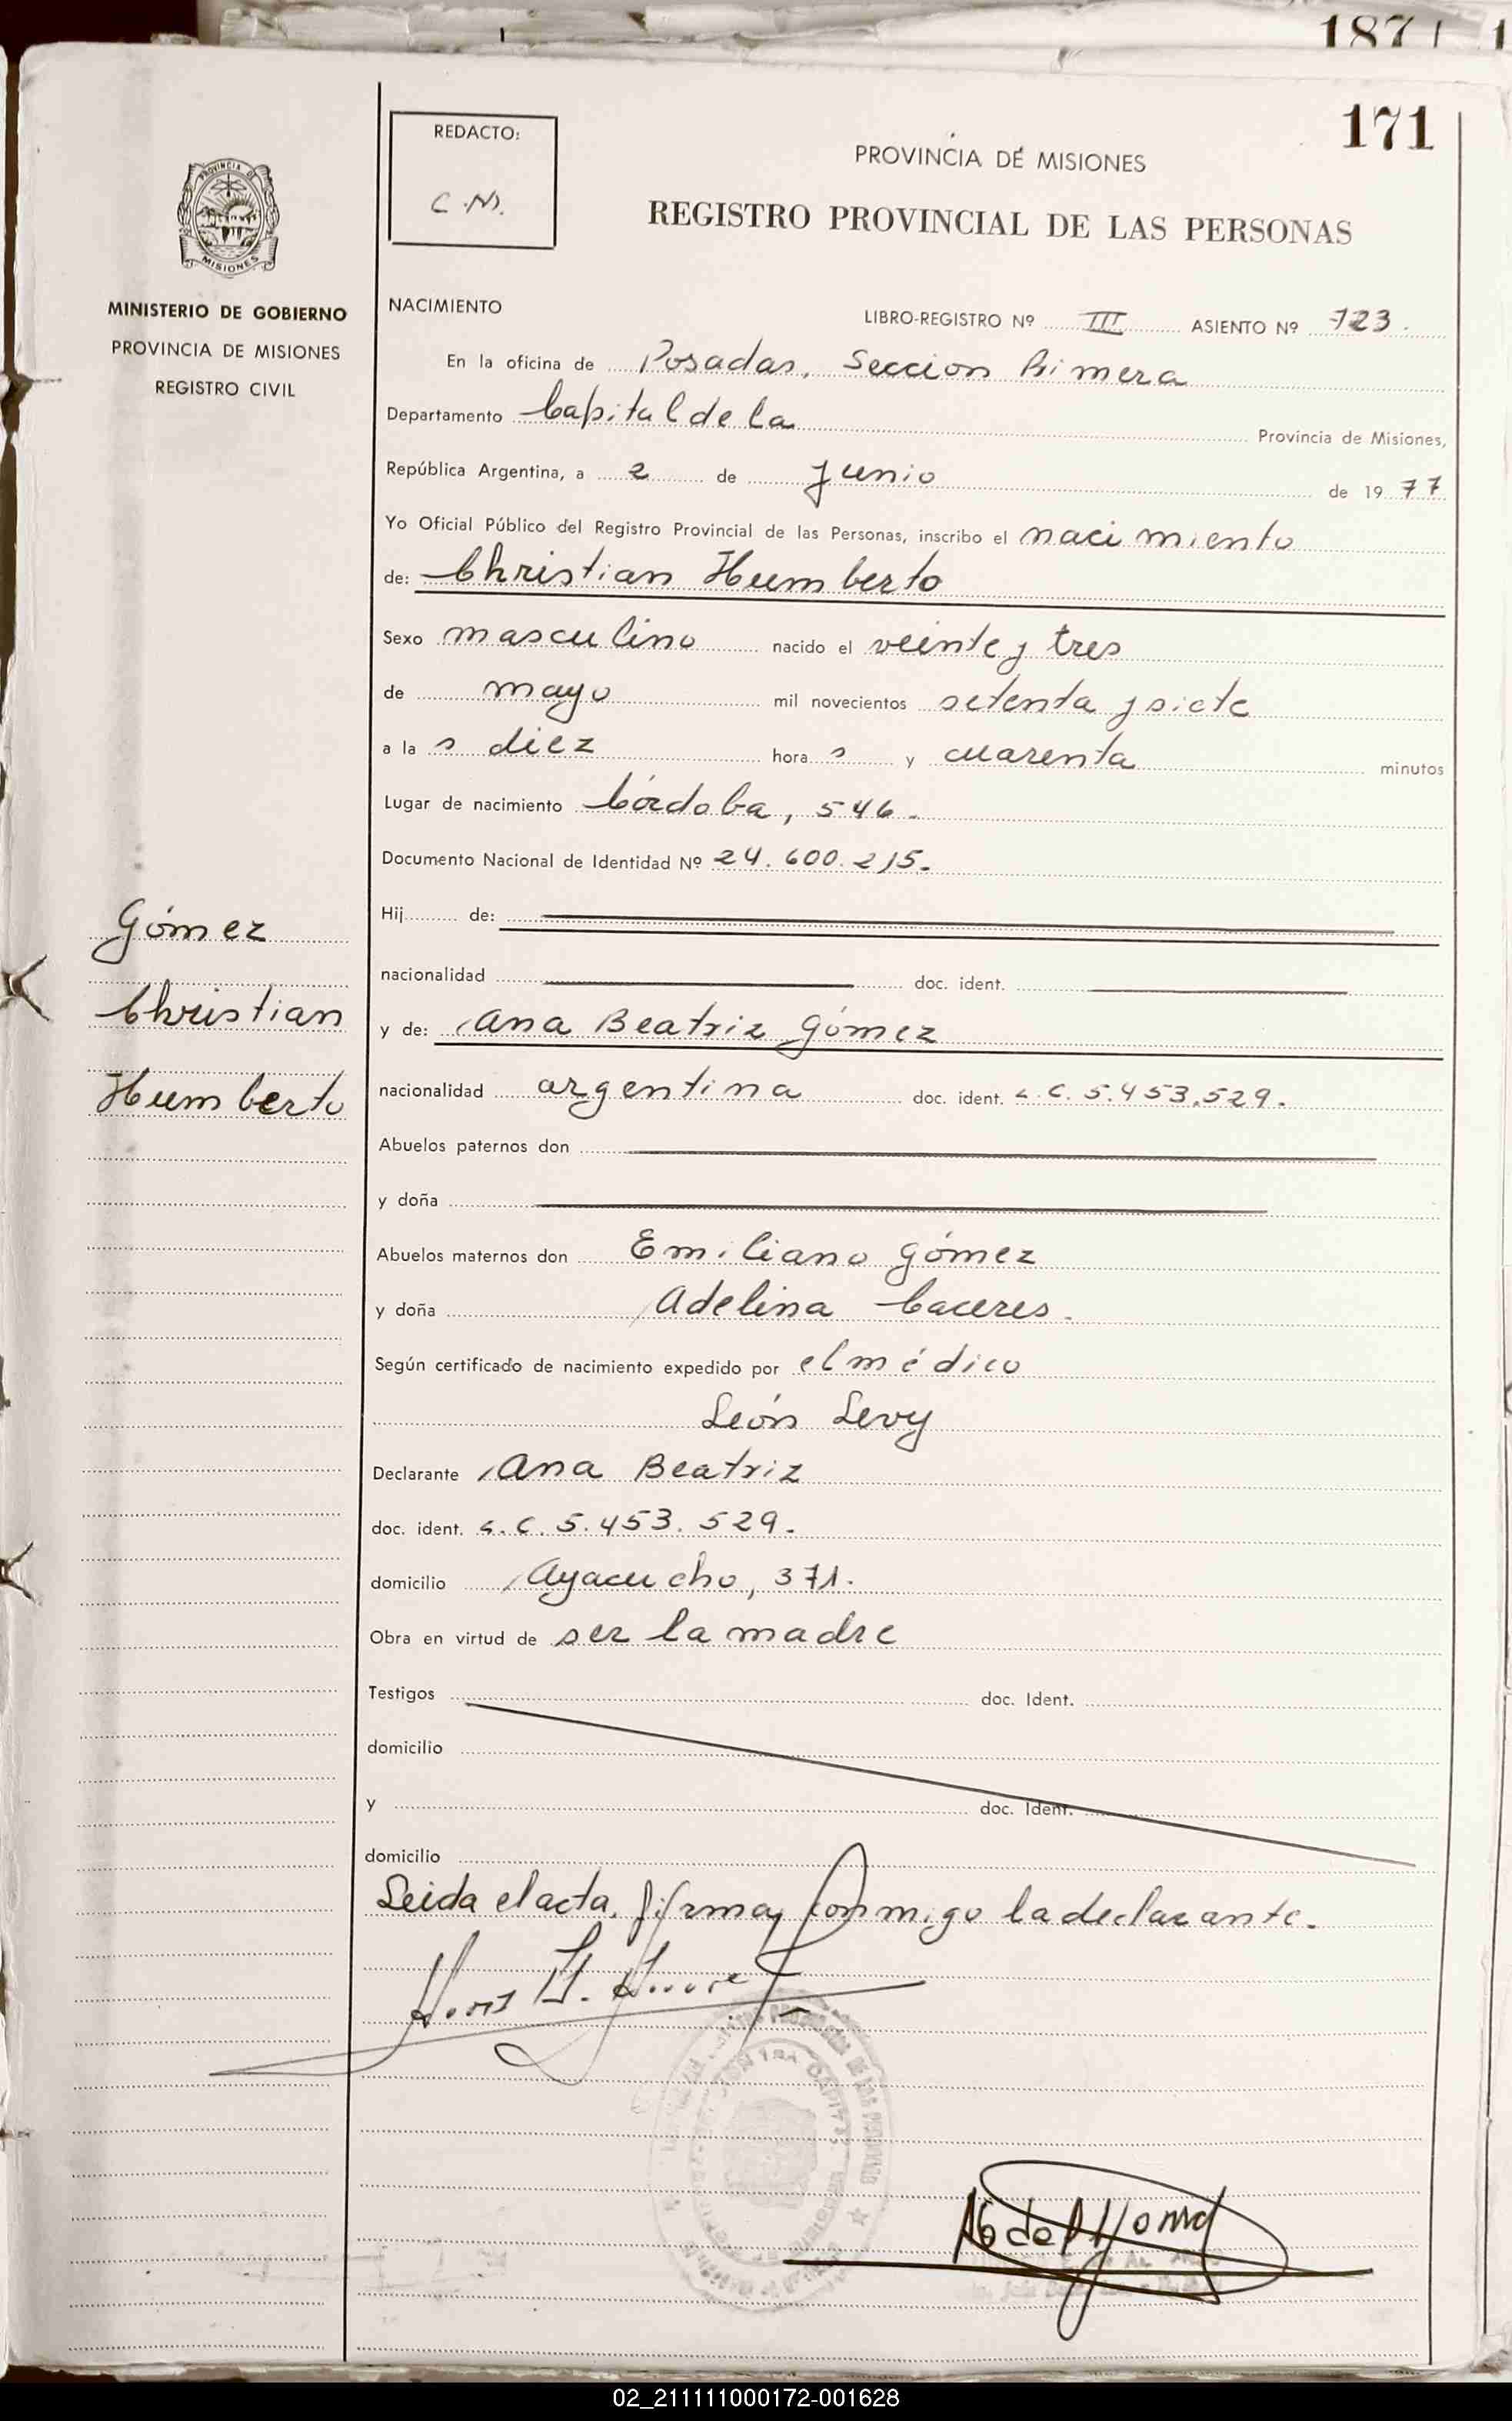 187
171
REDACTO:
C.N.
PROVINCIA DE MISIONES
REGISTRO PROVINCIAL DE LAS PERSONAS
PROVINCIA DE
MISIONES
MINISTERIO DE GOBIERNO
PROVINCIA DE MISIONES
REGISTRO CIVIL
NACIMIENTO
LIBRO-REGISTRO Nº III ASIENTO Nº 723.
En la oficina de Posadas, Seccion Primera
Departamento Capital de la Provincia de Misiones,
República Argentina, a 2 de Junio de 1977
Yo Oficial Público del Registro Provincial de las Personas, inscribo el nacimiento
de: Christian Humberto
Sexo masculino nacido el veinte y tres
de mayo mil novecientos setenta y siete
a la s diez hora s y cuarenta minutos
Lugar de nacimiento Córdoba, 546.
Documento Nacional de Identidad Nº 24.600.215.
Hij de:
nacionalidad doc. ident.
y de: Ana Beatriz Gómez
nacionalidad argentina doc. ident. L.C. 5.453.529.
Abuelos paternos don
y doña
Abuelos maternos don Emiliano Gómez
y doña Adelina Caceres.
Según certificado de nacimiento expedido por el médico
León Levy
Declarante Ana Beatriz
doc. ident. L.C. 5.453.529.
domicilio Ayacucho, 371.
Obra en virtud de ser la madre
Testigos doc. Ident.
domicilio
y doc. Ident.
domicilio
Leida el acta, firma conmigo la declarante.
Gómez
Christian
Humberto
02_211111000172-001628